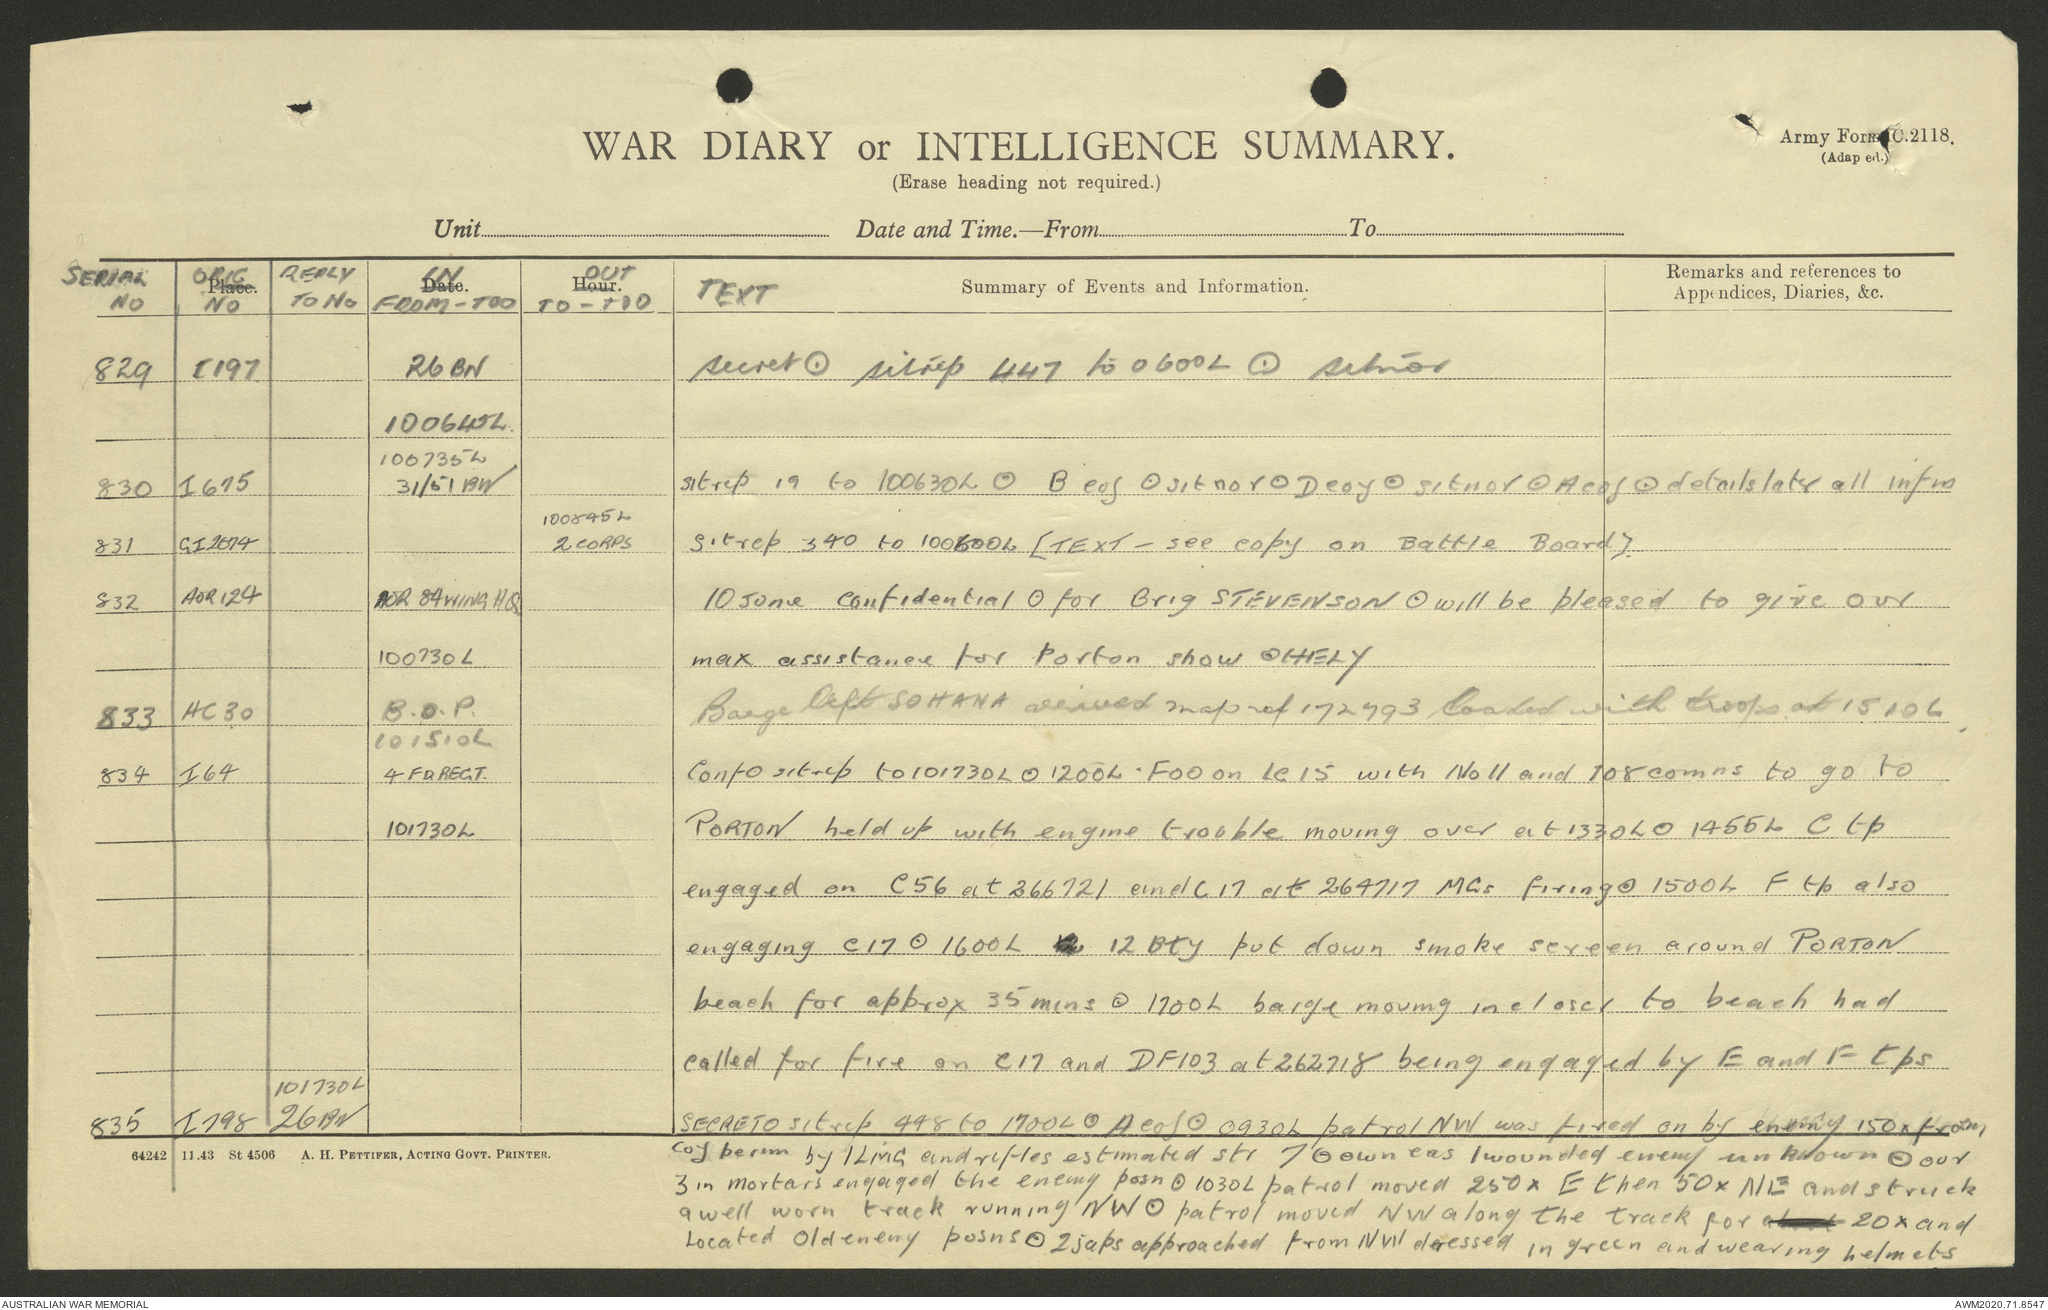 WAR DIARY or INTELLIGENCE SUMMARY.
Army Form C.2118.
(Adap ed.)
(Erase heading not required.)
Unit Date and Time.—From To
SERIAL NO ORIG NO REPLY TO NO IN FROM - TOO OUT TO - TOO TEXT Summary of Events and Information. Remarks and references to Appendices, Diaries, &c.
Place. Date. Hour.
829 I197 26 BN secret ⊙ sitrep 447 to 0600L ⊙ sitnor
100645L.
100735L
830 I675 31/51 BN sitrep 19 to 100630L ⊙ B coy ⊙ sitnor ⊙ D coy ⊙ sitnor ⊙ A coy ⊙ details later all infm
100845L
831 GI2674 2 CORPS sitrep 340 to 100600L [TEXT - see copy on Battle Board].
832 AOR124 AOR 84 WING HQ 10 June confidential ⊙ for Brig STEVENSON ⊙ will be pleased to give our
100730L max assistance for Porton show ⊙ HELY
833 HC30 B.O.P. Barge left SOHANA arrived map ref 172793 loaded with troops at 1510L
101510L
834 I64 4 FD REGT. Conf ⊙ sitrep to 101730L ⊙ 1200L. FOO on LC15 with No 11 and 108 comns to go to
101730L PORTON held up with engine trouble moving over at 1330L ⊙ 1455L C tp
engaged on C56 at 266721 and C17 at 264717 MGs firing ⊙ 1500L F tp also
engaging C17 ⊙ 1600L 12 Bty put down smoke screen around PORTON
beach for approx 35 mins ⊙ 1700L barge moving in closer to beach had
called for fire on C17 and DF103 at 262718 being engaged by E and F tps
101730L
835 I798 26 BN SECRET ⊙ sitrep 448 to 1700L ⊙ A coy ⊙ 0930L patrol NW was fired on by enemy 150x from
64242 11.43 St 4506 A. H. PETTIFER, ACTING GOVT. PRINTER.
coy perim by 1 LMG and rifles estimated str 7 ⊙ own cas 1 wounded enemy unknown ⊙ our
3 in mortars engaged the enemy posn ⊙ 1030L patrol moved 250x E then 50x NE and struck
a well worn track running NW ⊙ patrol moved NW along the track for 20x and
Located Old enemy posns ⊙ 2 japs approached from NW dressed in green and wearing helmets
AUSTRALIAN WAR MEMORIAL
AWM2020.71.8547